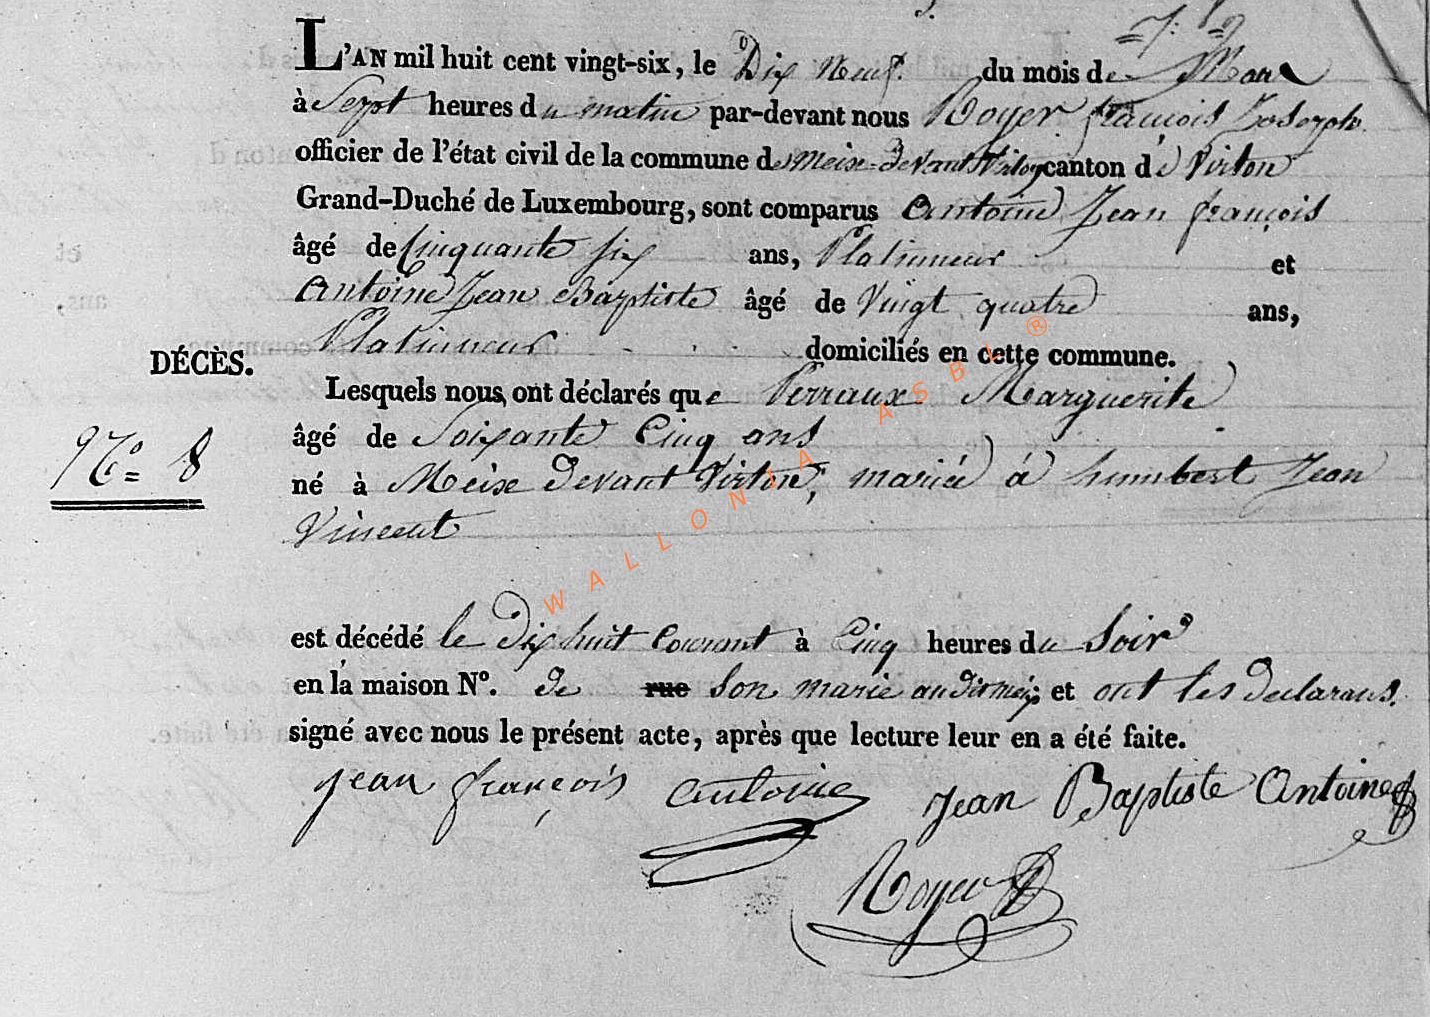 L'AN mil huit cent vingt-six, le Dix Neuf. du mois de Mars
à Sept heures du matin par-devant nous Royer françois Joseph
officier de l'état civil de la commune de Meix-devant Virton canton de Virton
Grand-Duché de Luxembourg, sont comparus Antoine Jean françois
âgé de Cinquante six ans, Platineur et
Antoine Jean Baptiste âgé de Vingt quatre ans,
Platineur domiciliés en cette commune.
DÉCÈS.
Lesquels nous ont déclarés que Perraux Marguerite
âgé de Soixante Cinq ans
No 8
né à Meix devant Virton, mariée à humbert Jean
Vincent
est décédé le Dix huit Courant à Cinq heures du Soir
en la maison No. de rue Son marie au dit meix; et ont les declarans.
signé avec nous le présent acte, après que lecture leur en a été faite.
jean françois antoine Jean Baptiste Antoine
Royer
WALLONIA ASBL ®